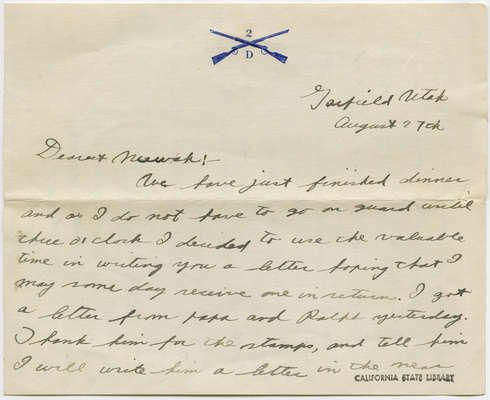 2
D
Garfield Utah
August 27th
Dearest
We have just finished dinner
and as I do not have to go on guard until
three o'clock I decided to use the valuable
time in writing you a letter hoping that I
may some day receive one in return. I got
a letter from papa and Ralph yesterday.
Thank him for the stamps, and tell him
I will write him a letter in the near
CALIFORNIA STATE LIBRARY